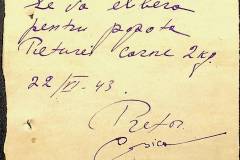 Se va elibera
pentru popota
carne 2 kg.
22/XI-43.
Pretor